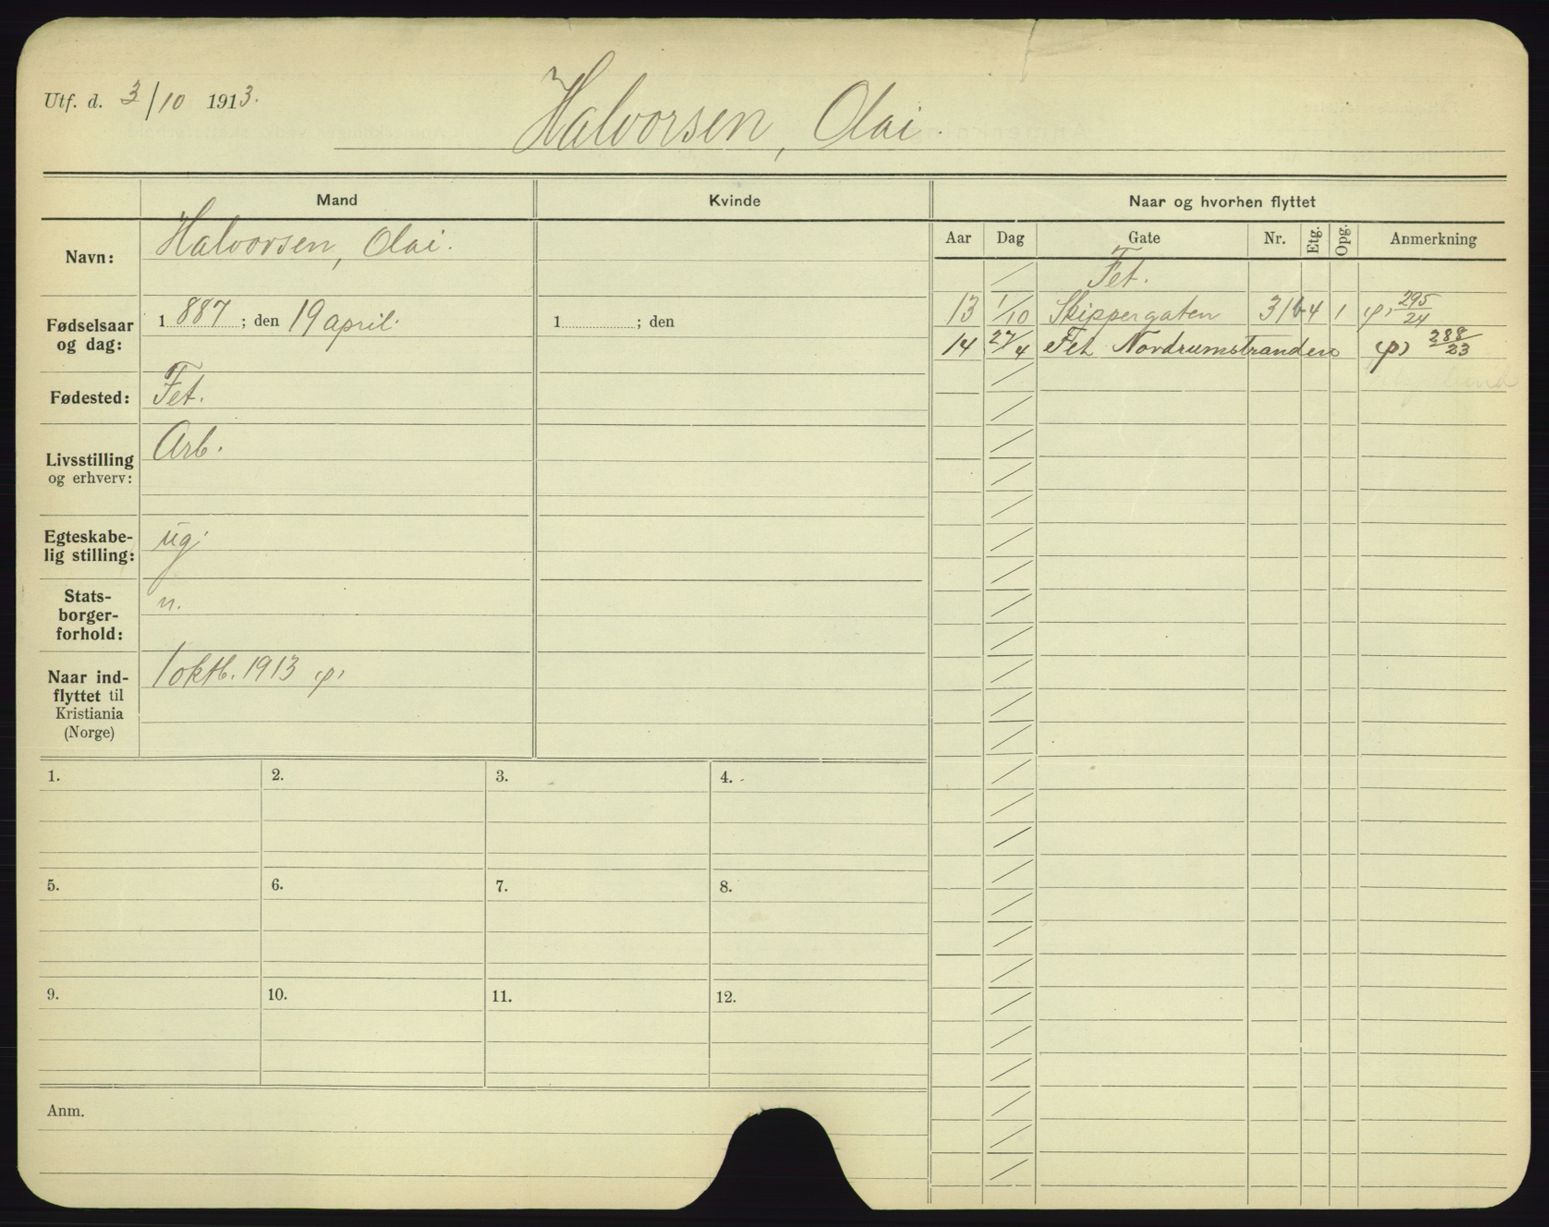 Utf. d. 3/10 1913.
Halvorsen, Olai.
Mand
Kvinde
Naar og hvorhen flyttet
Navn:
Halvorsen, Olai.
Fødselsaar og dag:
1 887 ; den 19 april.
1 ; den
Fødested:
Fet.
Livsstilling og erhverv:
Arb.
Egteskabe-
lig stilling:
ug.
Stats-
borger-
forhold:
n.
Naar ind-
flyttet til
Kristiania
(Norge)
1 oktb. 1913 φ,
Aar Dag Gate Nr. Etg. Opg. Anmerkning
Fet.
13 1/10 Skippergaten 31b 4 1 φ, 295/24
14 27/4 Fet Nordrumstranden φ) 288/23
1. 2. 3. 4.
5. 6. 7. 8.
9. 10. 11. 12.
Anm.